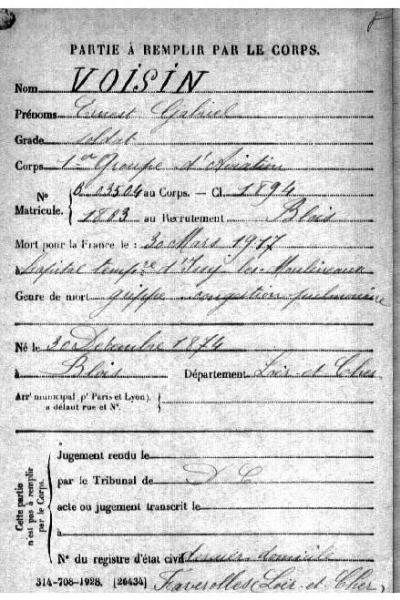 PARTIE À REMPLIR PAR LE CORPS.
Nom VOISIN
Prénoms Ernest Gabriel
Grade soldat
Corps 1er Groupe d'Aviation
N° Matricule. { 03504 au Corps. — Cl. 1894
1883 au Recrutement Blois
Mort pour la France le : 30 Mars 1917
à hôpital tempre d'Issy les Moulineaux
Genre de mort grippe congestion pulmonaire
Né le 30 Décembre 1874
à Blois Département Loir et Cher
Arrt municipal (pr Paris et Lyon), à défaut rue et N°. {
Cette partie n'est pas à remplir par le Corps. {
Jugement rendu le
par le Tribunal de D C
acte ou jugement transcrit le
à
N° du registre d'état civil dernier domicile
314-708-1928. [26434] Faverolles (Loir et Cher)